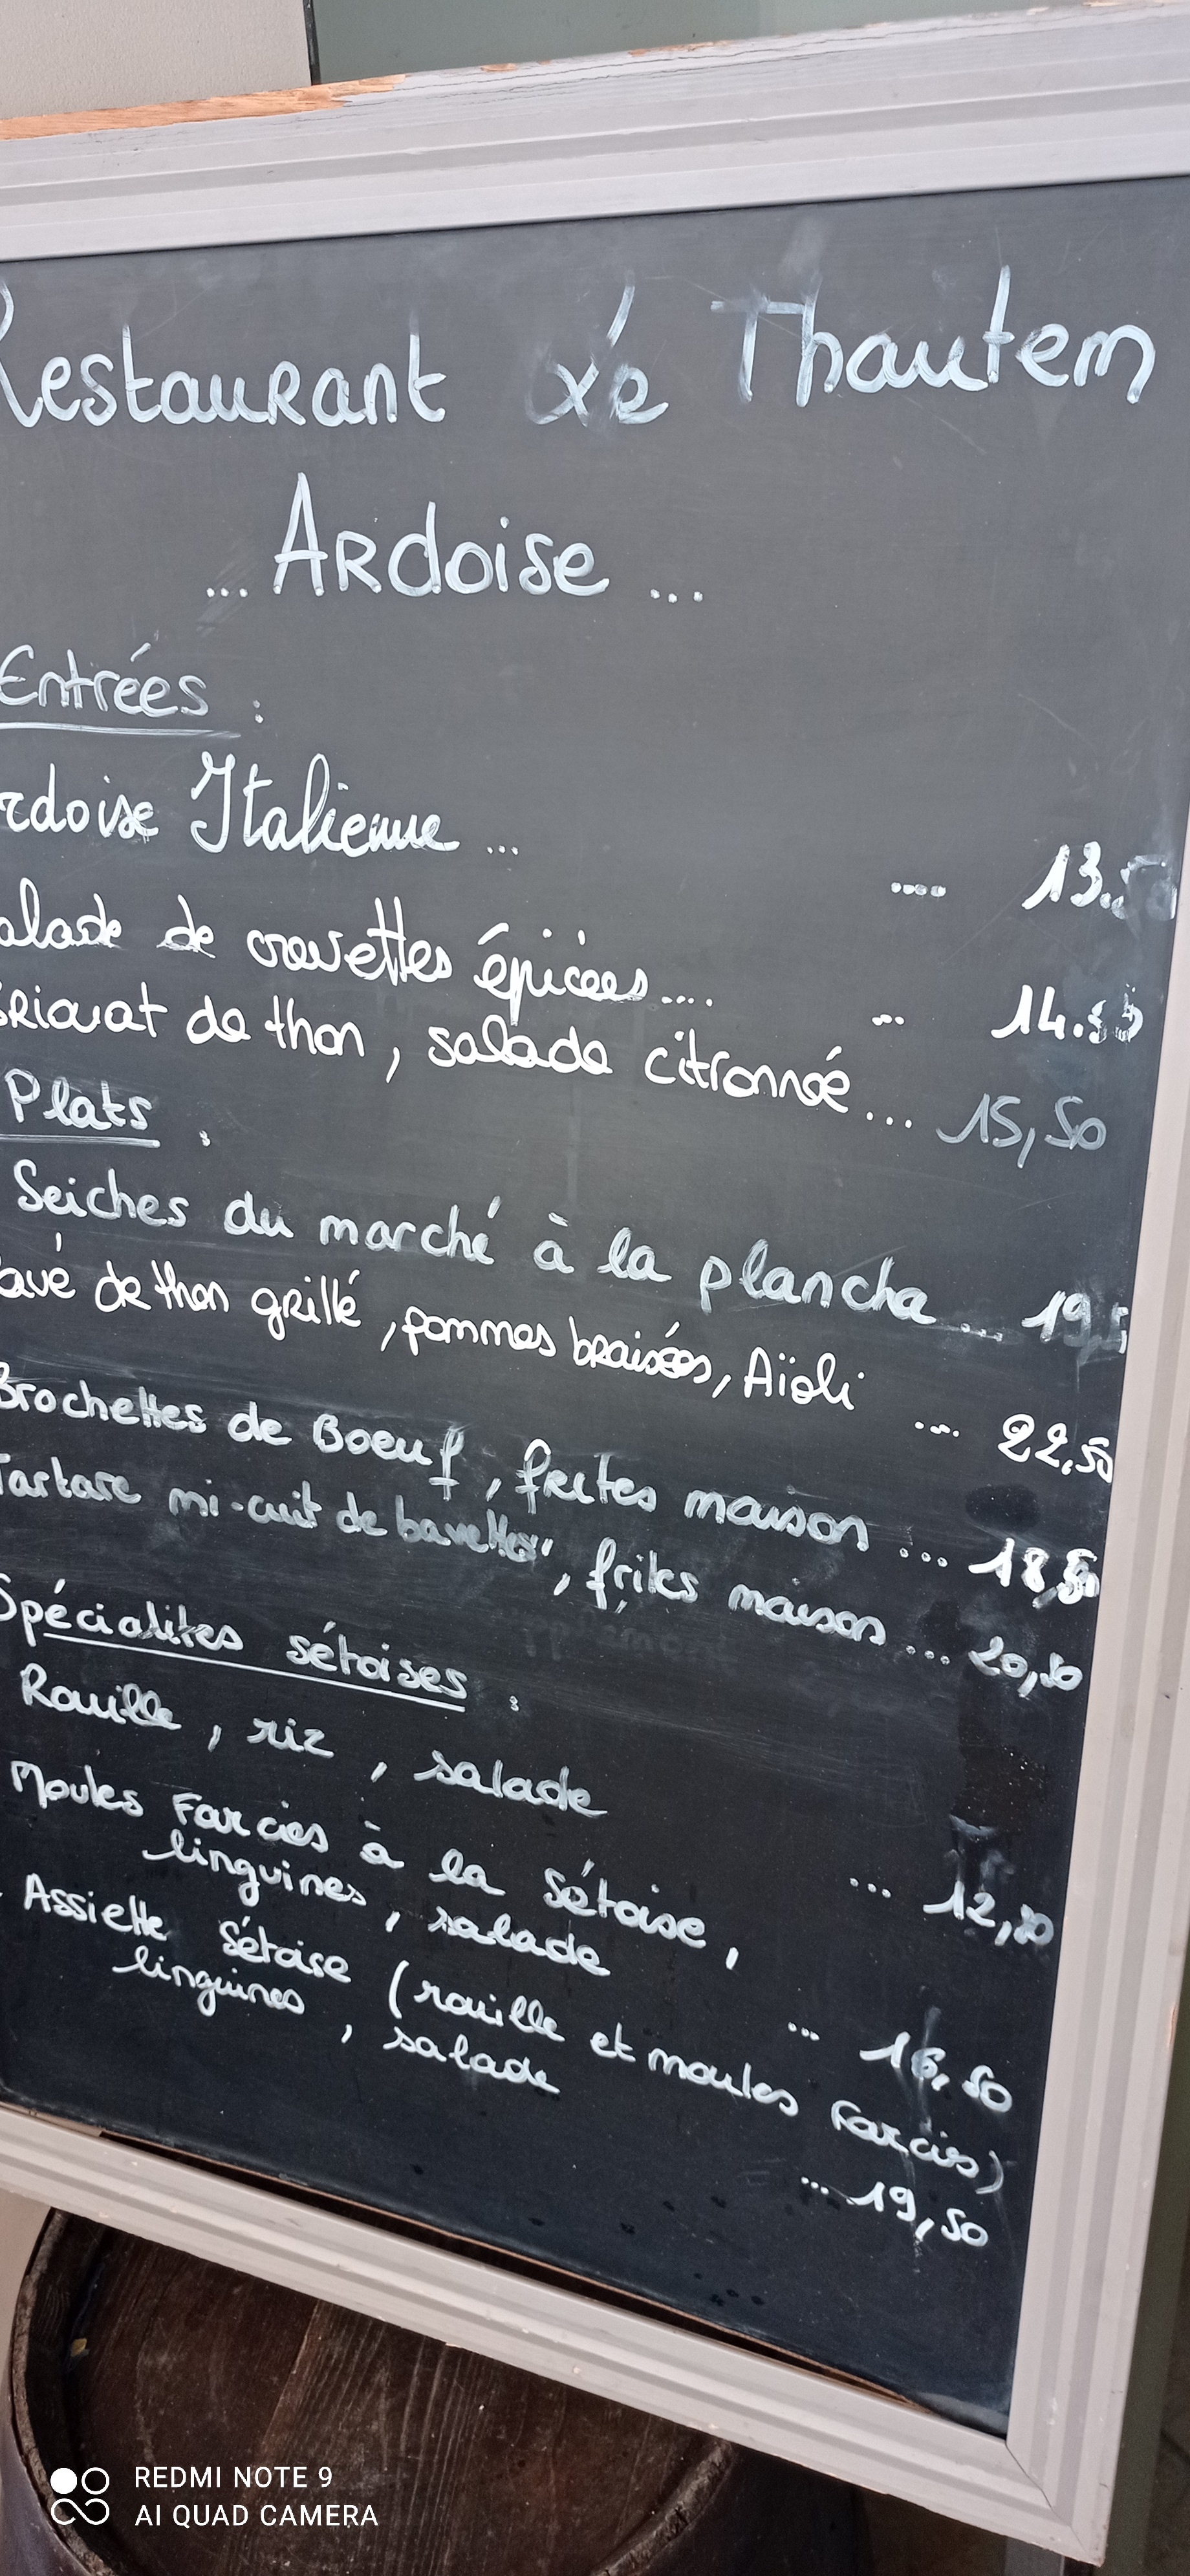 Restaurant Le Thautem
... Ardoise ...
Entrées :
rdoise Italienne ... .... 13.50
alade de crevettes épicées .... ... 14.50
Briouat de thon, salade citronnée ... 15,50
Plats :
Seiches du marché à la plancha ... 19,5
avé de thon grillé, pommes braisées, Aïoli ... 22,50
Brochettes de Boeuf, frites maison ... 18,50
Tartare mi-cuit de bavettes, frites maison ... 20,50
Spécialités sétoises :
Rouille, riz, salade ... 12,50
Moules Farcies à la Sétoise,
linguines, salade ... 16,50
Assiette Sétoise (rouille et moules Farcies)
linguines, salade ... 19,50
REDMI NOTE 9
AI QUAD CAMERA